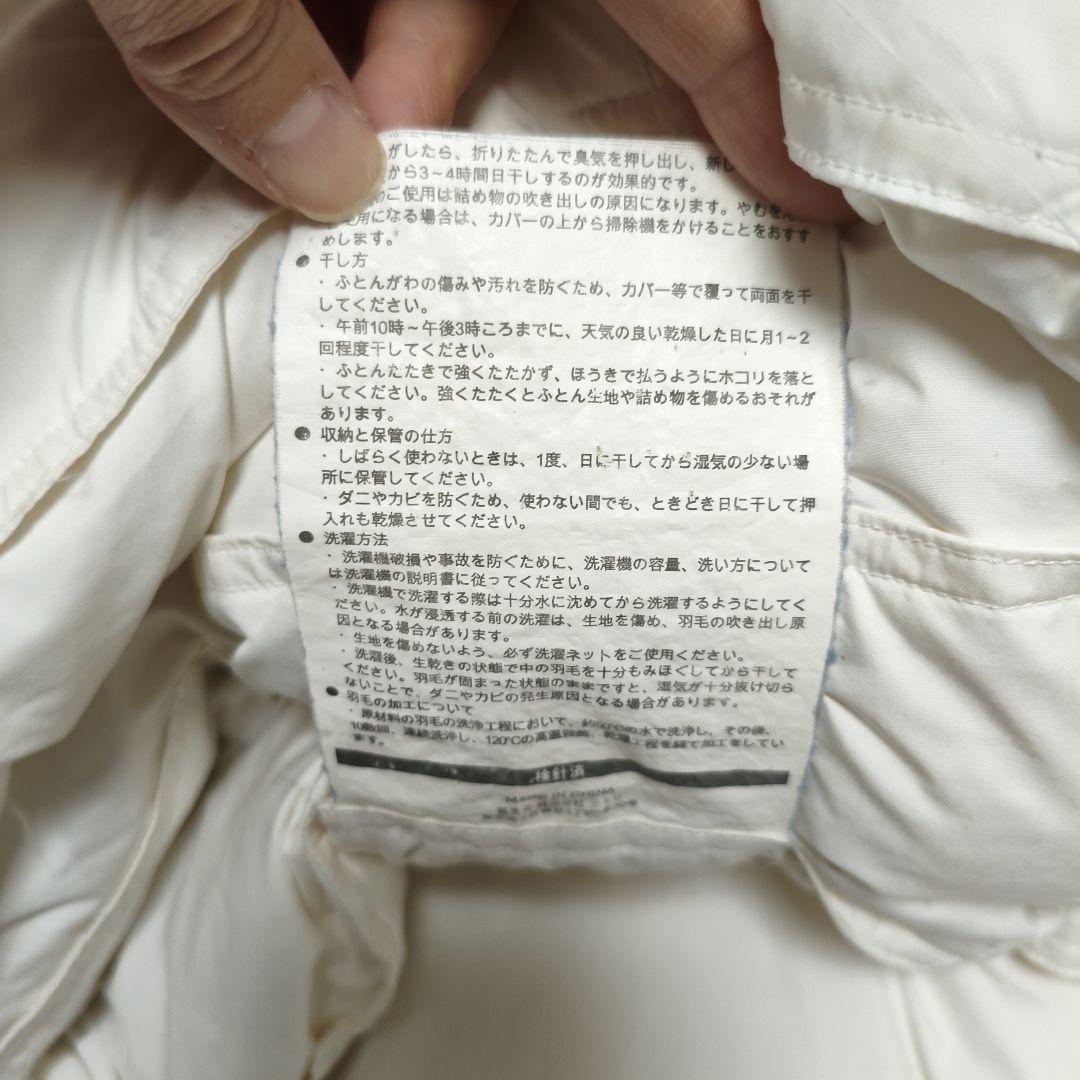 がしたら、折りたたんで臭気を押し出し、新し
から3～4時間日干しするのが効果的です。
ご使用は詰め物の吹き出しの原因になります。やむをえ
使用になる場合は、カバーの上から掃除機をかけることをおすす
めします。
● 干し方
・ふとんがわの傷みや汚れを防ぐため、カバー等で覆って両面を干
してください。
・午前10時～午後3時ころまでに、天気の良い乾燥した日に月1～2
回程度干してください。
・ふとんたたきで強くたたかず、ほうきで払うようにホコリを落と
してください。強くたたくとふとん生地や詰め物を傷めるおそれが
あります。
● 収納と保管の仕方
・しばらく使わないときは、1度、日に干してから湿気の少ない場
所に保管してください。
・ダニやカビを防ぐため、使わない間でも、ときどき日に干して押
入れも乾燥させてください。
● 洗濯方法
・洗濯機破損や事故を防ぐために、洗濯機の容量、洗い方について
は洗濯機の説明書に従ってください。
・洗濯機で洗濯する際は十分水に沈めてから洗濯するようにしてく
ださい。水が浸透する前の洗濯は、生地を傷め、羽毛の吹き出し原
因となる場合があります。
・生地を傷めないよう、必ず洗濯ネットをご使用ください。
・洗濯後、生乾きの状態で中の羽毛を十分もみほぐしてから干して
ください。羽毛が固まった状態のままですと、湿気が十分抜け切ら
ないことで、ダニやカビの発生原因となる場合があります。
● 羽毛の加工について
・原材料の羽毛の洗浄工程において、の水で洗浄し、その後、
10数回、連続洗浄し、120℃の高温殺菌、乾燥工程を経て加工をしてい
ます。
検針済
MADE IN CHINA
株式会社ニトリ